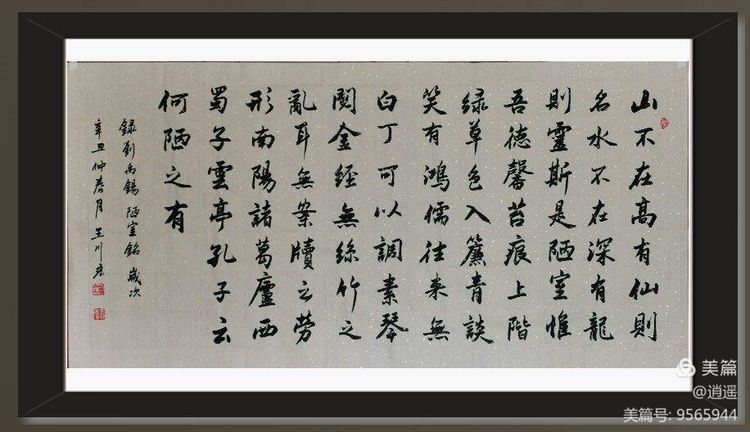 山不在高有仙則
名水不在深有龍
則靈斯是陋室惟
吾德馨苔痕上階
緑草色入簾青談
笑有鴻儒往来無
白丁可以調素琴
閱金經無絲竹之
亂耳無案牘之勞
形南陽諸葛廬西
蜀子雲亭孔子云
何陋之有
録劉禹錫陋室銘歲次
辛丑仲春月王川
美篇
@逍遥
美篇号: 9565944